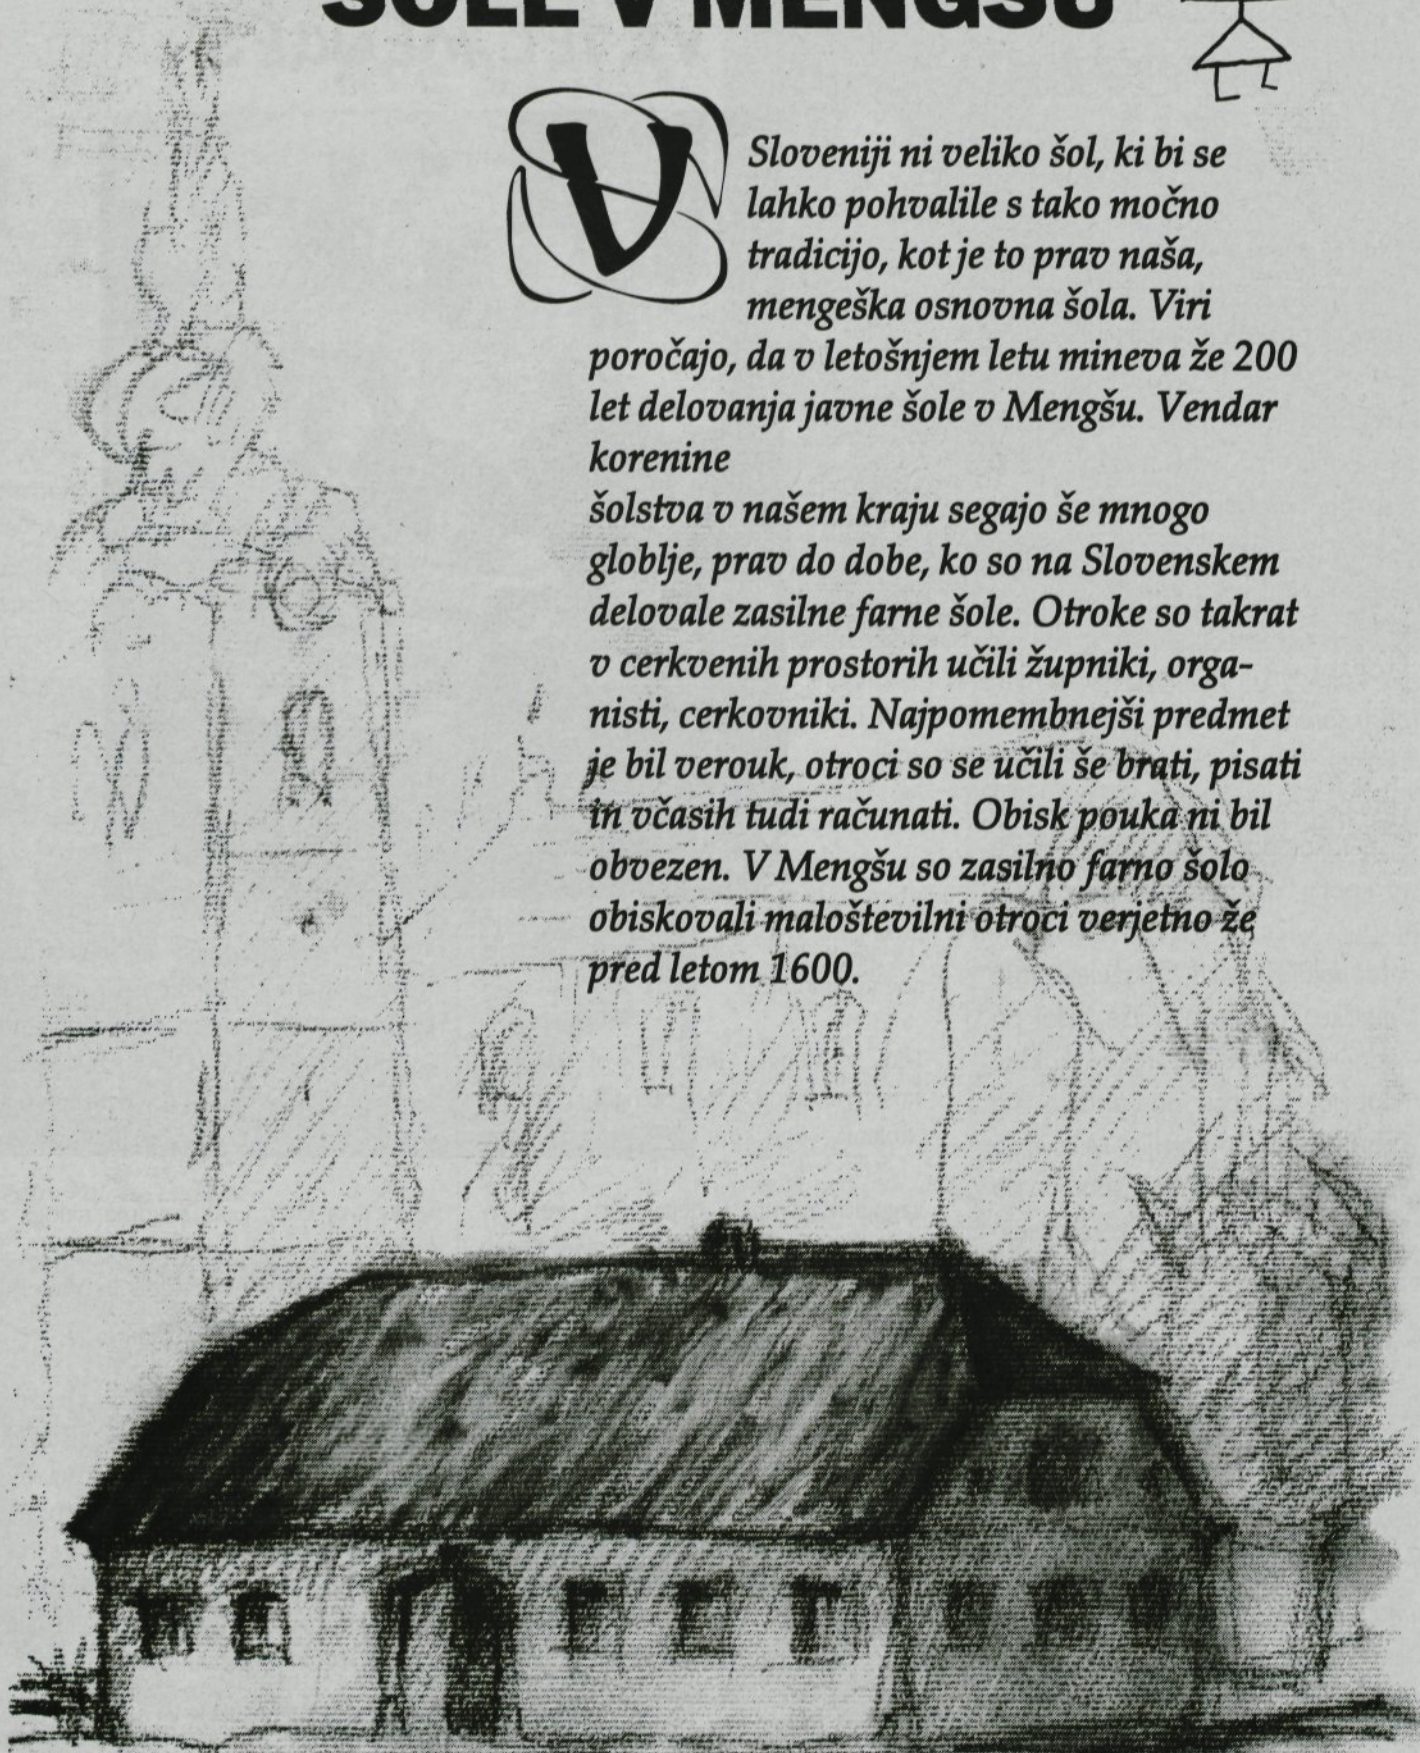 ŠOLE V MENGŠU
V Sloveniji ni veliko šol, ki bi se
lahko pohvalile s tako močno
tradicijo, kot je to prav naša,
mengeška osnovna šola. Viri
poročajo, da v letošnjem letu mineva že 200
let delovanja javne šole v Mengšu. Vendar
korenine
šolstva v našem kraju segajo še mnogo
globlje, prav do dobe, ko so na Slovenskem
delovale zasilne farne šole. Otroke so takrat
v cerkvenih prostorih učili župniki, orga-
nisti, cerkovniki. Najpomembnejši predmet
je bil verouk, otroci so se učili še brati, pisati
in včasih tudi računati. Obisk pouka ni bil
obvezen. V Mengšu so zasilno farno šolo
obiskovali maloštevilni otroci verjetno že
pred letom 1600.